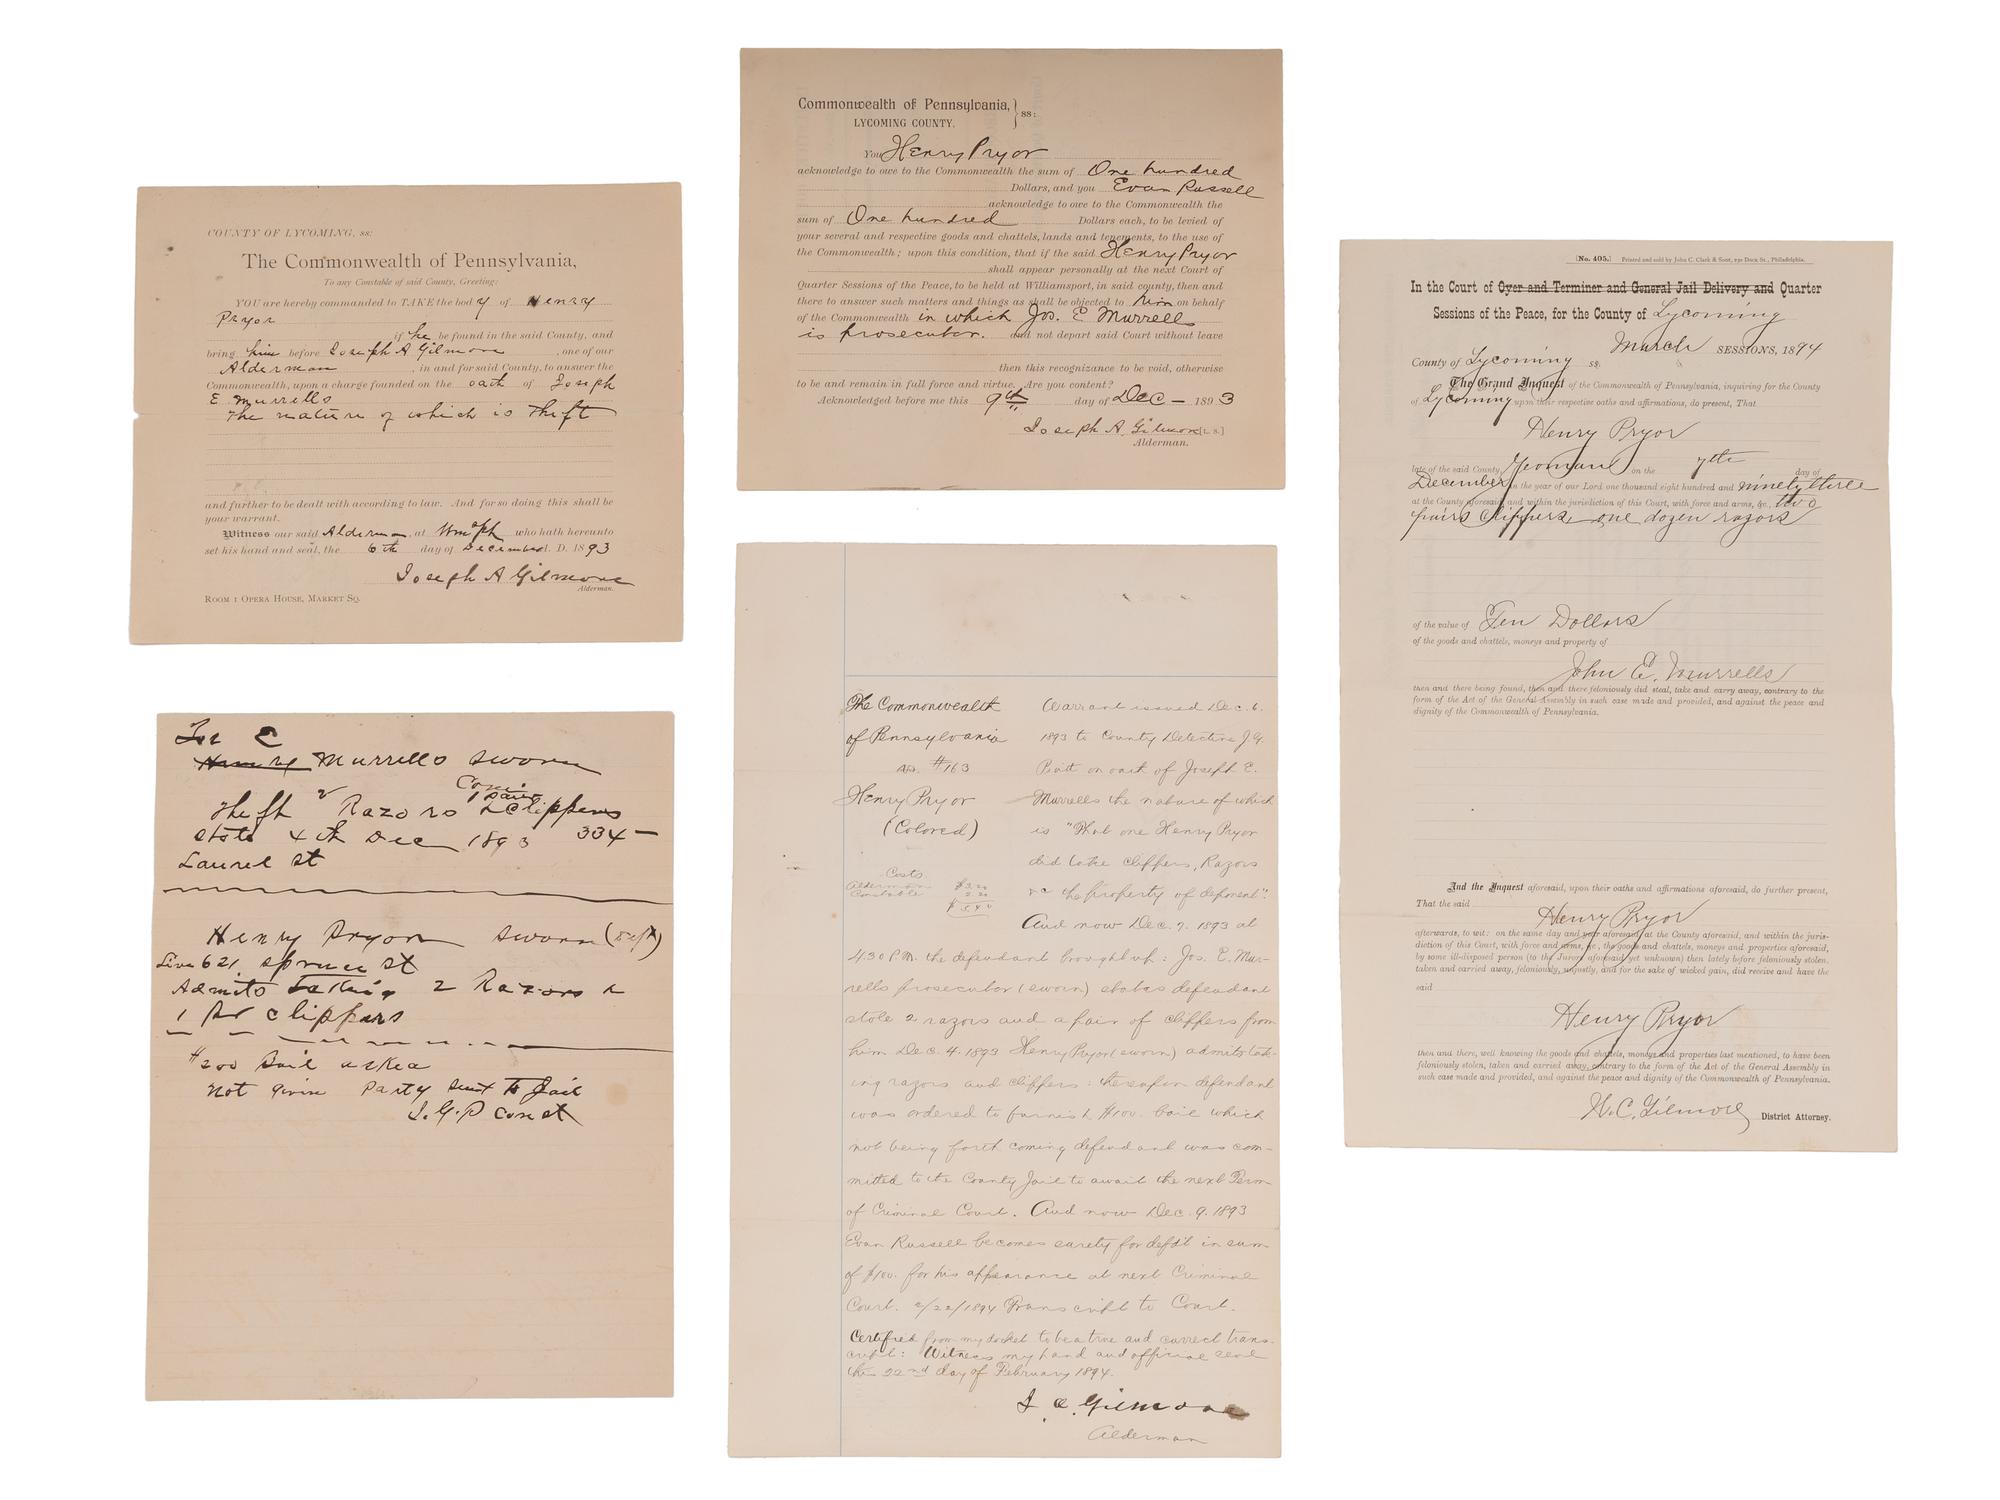 COUNTY OF LYCOMING, ss:
The Commonwealth of Pennsylvania,
To any Constable of said County, Greeting:
YOU are hereby commanded to TAKE the body of Henry
Pryor
if he be found in the said County, and
bring him before Joseph A Gilmore, one of our
Alderman, in and for said County, to answer the
Commonwealth, upon a charge founded on the oath of Joseph
E Murrells
the nature of which is theft
and further to be dealt with according to law. And for so doing this shall be
your warrant.
Witness our said Alderman at Wmsph who hath hereunto
set his hand and seal, the 6th day of December A. D. 1893
Joseph A Gilmore
Alderman.
ROOM 1 OPERA HOUSE, MARKET SQ.
Jos E
Henry Murrells sworn
Theft Razors 1 pair Clippers
stole 4th Dec 1893 334—
Laurel St
Henry Pryor sworn (Deft)
Live 621 Spruce St
Admits taking 2 Razors &
1 pr clippers
$200 Bail asked
not given Party sent to Jail
J.G.P Const
Commonwealth of Pennsylvania, } ss:
LYCOMING COUNTY.
You Henry Pryor
acknowledge to owe to the Commonwealth the sum of One hundred
Dollars, and you Evan Russell
acknowledge to owe to the Commonwealth the
sum of One hundred Dollars each, to be levied of
your several and respective goods and chattels, lands and tenements, to the use of
the Commonwealth; upon this condition, that if the said Henry Pryor
shall appear personally at the next Court of
Quarter Sessions of the Peace, to be held at Williamsport, in said county, then and
there to answer such matters and things as shall be objected to him on behalf
of the Commonwealth in which Jos. E Murrells
is prosecutor. and not depart said Court without leave
then this recognizance to be void, otherwise
to be and remain in full force and virtue. Are you content?
Acknowledged before me this 9th day of Dec - 1893
Joseph A. Gilmore [L. S.]
Alderman.
The Commonwealth
of Pennsylvania
vs. #163
Henry Pryor
(Colored)
Costs
Alderman $3.20
Constable 2.20
$5.40
Warrant issued Dec. 6.
1893 to County Detective J.G.
on oath of Joseph E.
Murrells the nature of which
is "That one Henry Pryor
did take clippers, Razors
&c the property of deponent".
And now Dec. 7. 1893 at
4.30 P.M. the defendant brought up: Jos. E. Mur-
rells prosecutor (sworn) states defendant
stole 2 razors and a pair of clippers from
him Dec. 4. 1893 Henry Pryor (sworn) admits tak-
ing razors and clippers: thereupon defendant
was ordered to furnish $100. bail which
not being forth coming defendant was com-
mitted to the County Jail to await the next Term
of Criminal Court. And now Dec. 9. 1893
Evan Russell becomes surety for defdt in sum
of $100. for his appearance at next Criminal
Court. 2/22/1894 Transcript to Court.
Certified from my docket to be a true and correct trans-
cript: Witness my hand and official seal
this 22nd day of February 1894.
J. A. Gilmore
Alderman
[No. 405.] Printed and sold by John C. Clark & Sons, 230 Dock St., Philadelphia.
In the Court of Oyer and Terminer and General Jail Delivery and Quarter
Sessions of the Peace, for the County of Lycoming
March SESSIONS, 1894
County of Lycoming ss.
The Grand Inquest of the Commonwealth of Pennsylvania, inquiring for the County
of Lycoming upon their respective oaths and affirmations, do present, That
Henry Pryor
late of the said County, Yeoman on the 7th day of
December in the year of our Lord one thousand eight hundred and ninety three
at the County aforesaid, and within the jurisdiction of this Court, with force and arms, &c., two
pairs Clippers, one dozen razors
of the value of Ten Dollars
of the goods and chattels, moneys and property of
John E. Murrells
then and there being found, then and there feloniously did steal, take and carry away, contrary to the
form of the Act of the General Assembly in such case made and provided, and against the peace and
dignity of the Commonwealth of Pennsylvania.
And the Inquest aforesaid, upon their oaths and affirmations aforesaid, do further present,
That the said
Henry Pryor
afterwards, to wit: on the same day and year aforesaid, at the County aforesaid, and within the juris-
diction of this Court, with force and arms, &c., the goods and chattels, moneys and properties aforesaid,
by some ill-disposed person (to the Jurors aforesaid yet unknown) then lately before feloniously stolen,
taken and carried away, feloniously, unjustly, and for the sake of wicked gain, did receive and have the
said
Henry Pryor
then and there, well knowing the goods and chattels, moneys and properties last mentioned, to have been
feloniously stolen, taken and carried away, contrary to the form of the Act of the General Assembly in
such case made and provided, and against the peace and dignity of the Commonwealth of Pennsylvania.
H. C. Gilmore District Attorney.